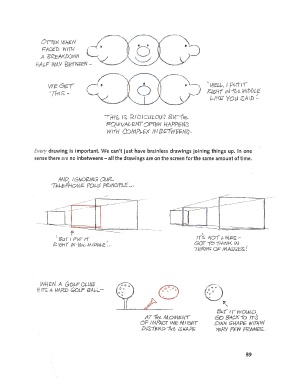 OFTEN WHEN
FACED WITH
A BREAKDOWN
HALF WAY BETWEEN -
WE GET
THIS -
"WELL, I PUT IT
RIGHT IN THE MIDDLE
LIKE YOU SAID -
THIS IS RIDICULOUS BUT THE
EQUIVALENT OFTEN HAPPENS
WITH COMPLEX INBETWEENS.
Every drawing is important. We can't just have brainless drawings joining things up. In one
sense there are no inbetweens – all the drawings are on the screen for the same amount of time.
AND, IGNORING OUR
TELEPHONE POLE PRINCIPLE...
'BUT I PUT IT
RIGHT IN THE MIDDLE'...
IT'S NOT LINES -
GOT TO THINK IN
TERMS OF MASSES!
WHEN A GOLF CLUB
HITS A HARD GOLF BALL-
AT THE MOMENT
OF IMPACT WE MIGHT
DISTEND THE SHAPE
BUT IT WOULD
GO BACK TO ITS
OWN SHAPE WITHIN
VERY FEW FRAMES.
89